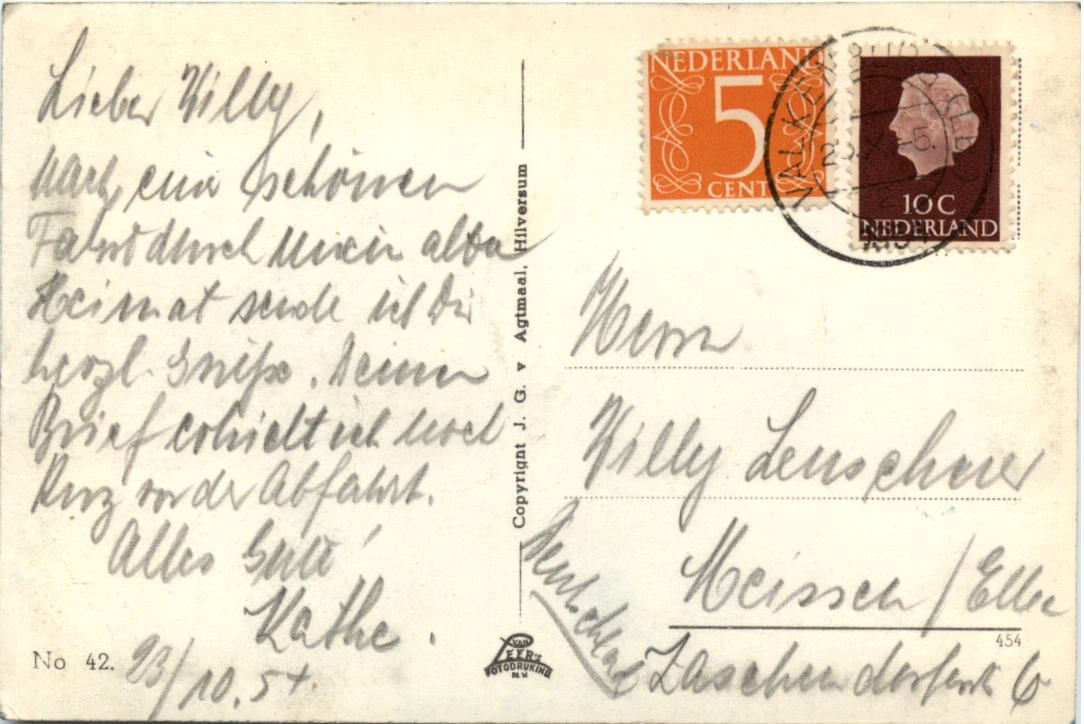 Lieber Willy,
nach einer schönen
Fahrt durch meine alte
Heimat sende ich Dir
herzl. Grüße. Deinen
Brief erhielt ich noch
kurz vor der Abfahrt.
Alles Gute!
Käthe.
23/10.57.
No 42.
Copyright J. G. v Agtmaal, Hilversum
VAN
LEER'S
FOTODRUKIND
N.V.
NEDERLAND
5
CENT
10 C
NEDERLAND
Herrn
Willy Leuschner
Meissen / Elbe
454
Zaschendorferstr. 6
Deutschland